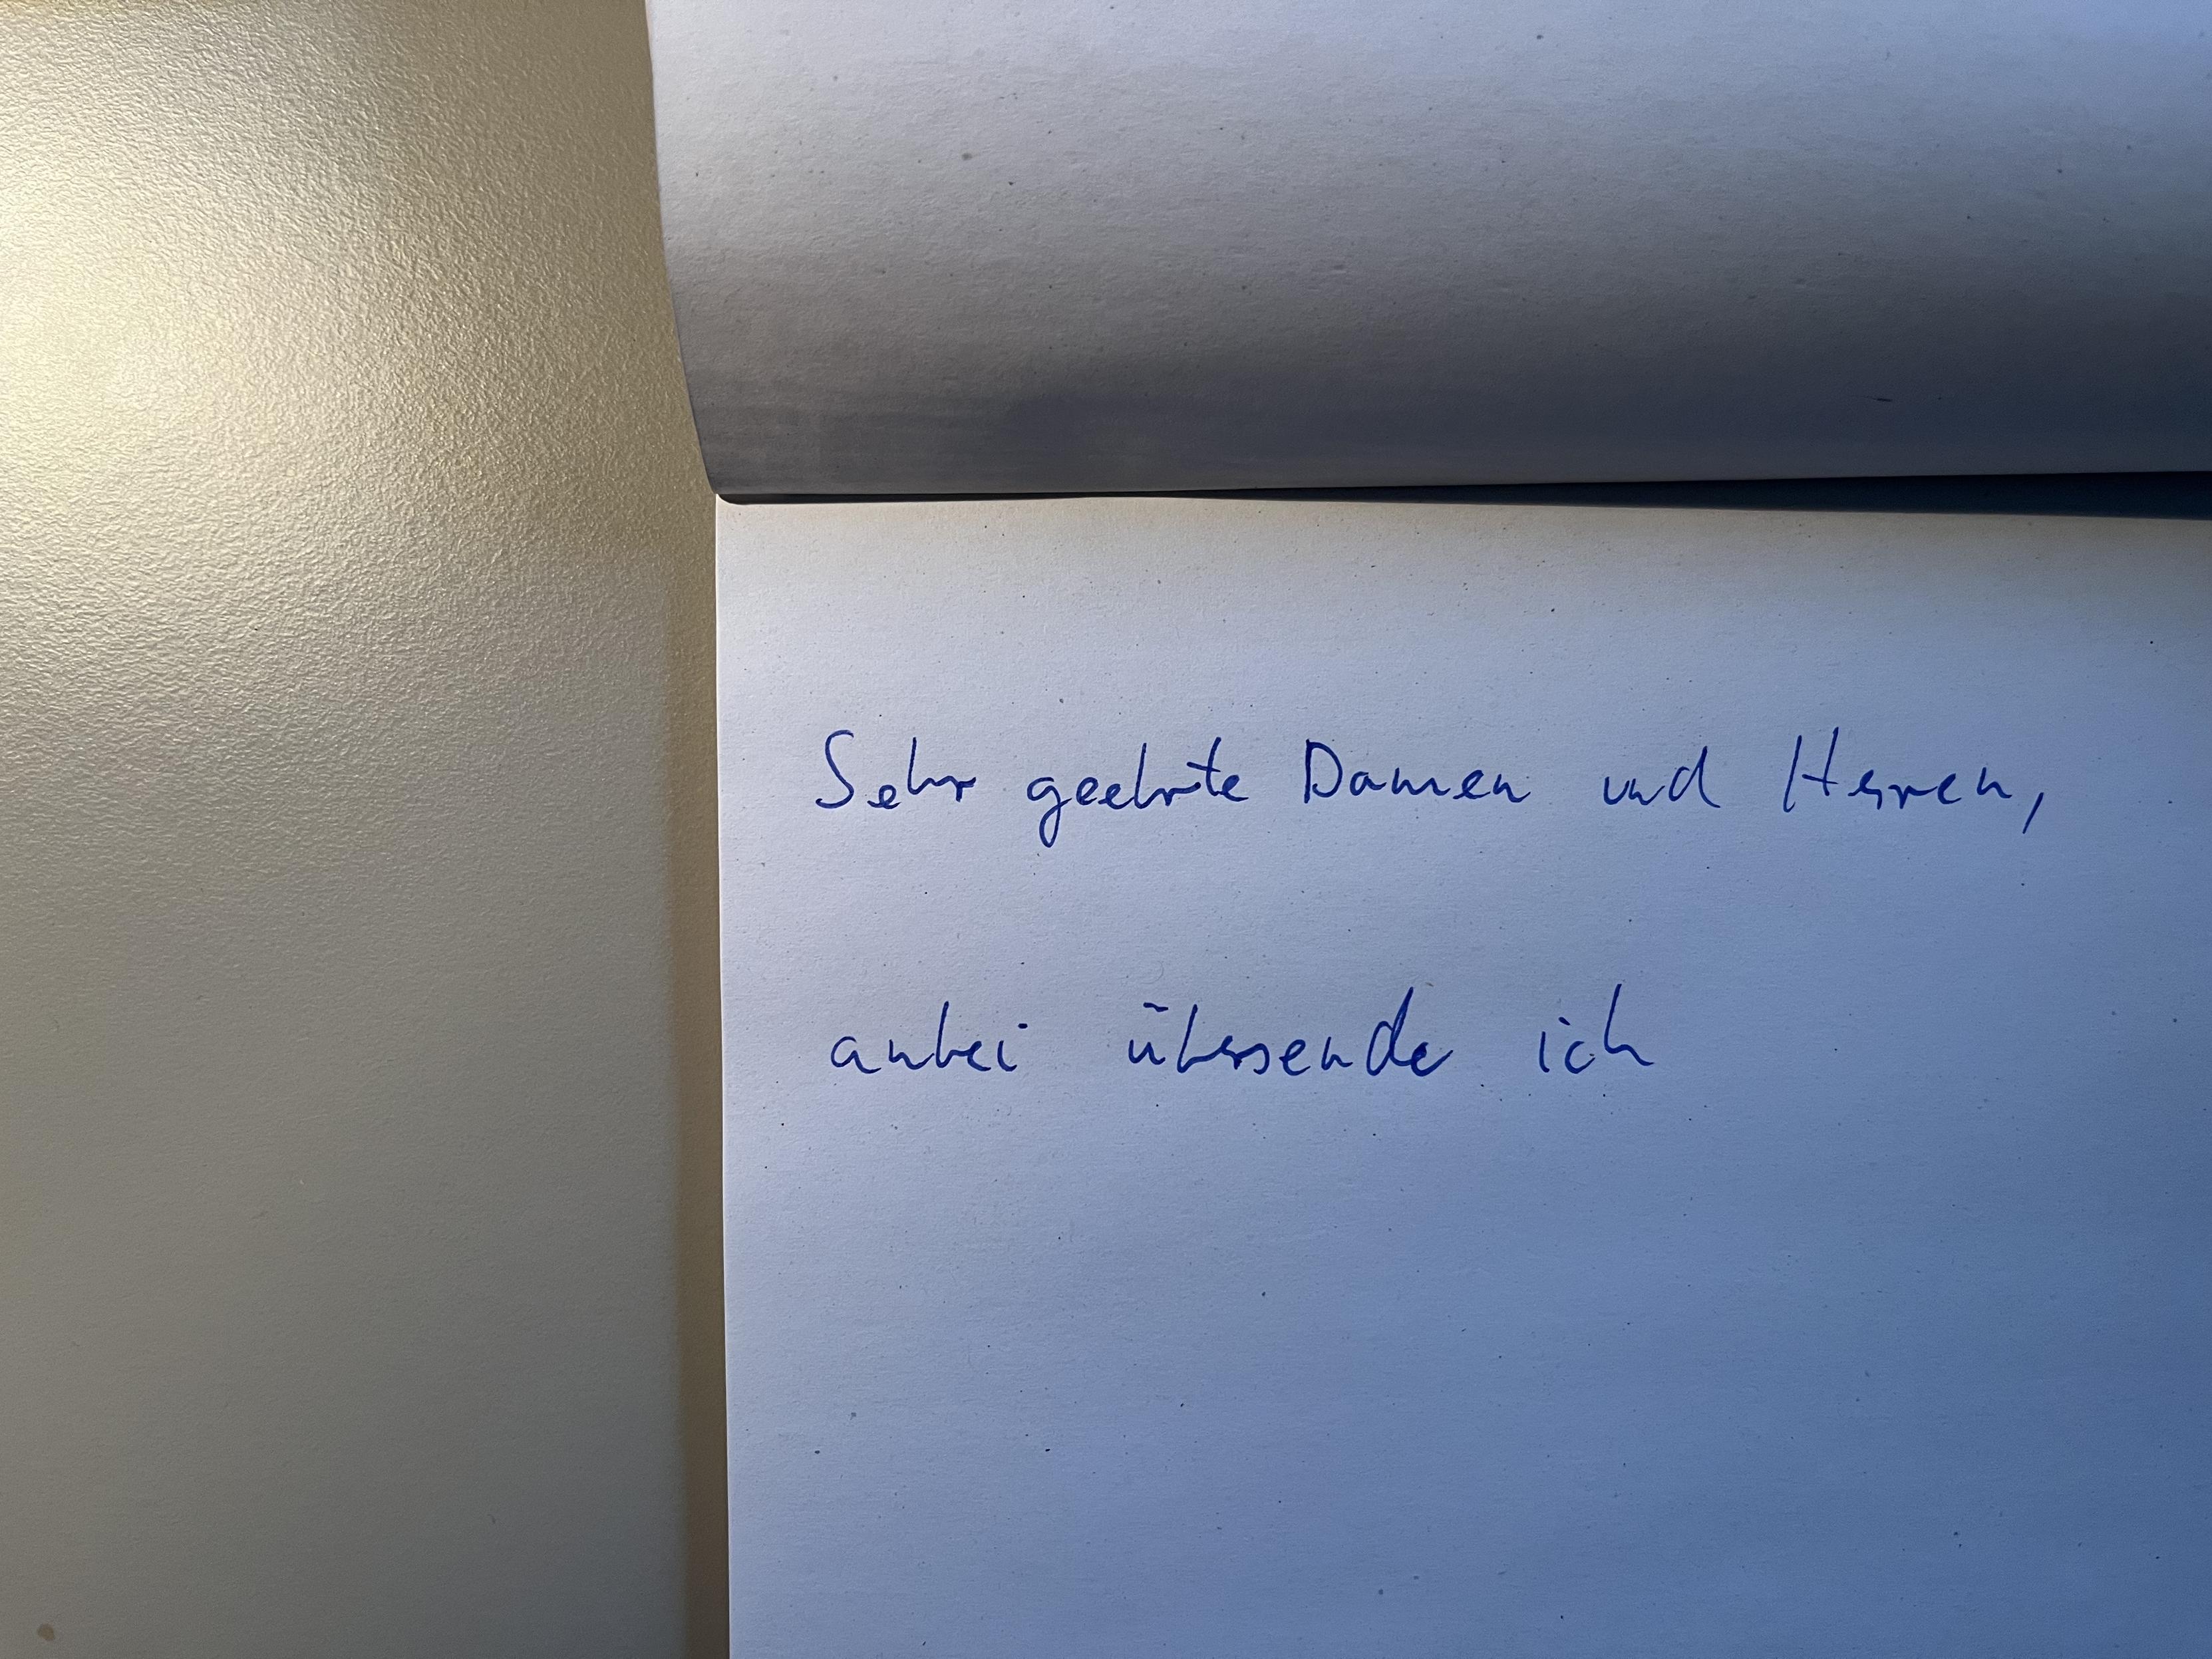 Sehr geehrte Damen und Herren,
anbei übersende ich